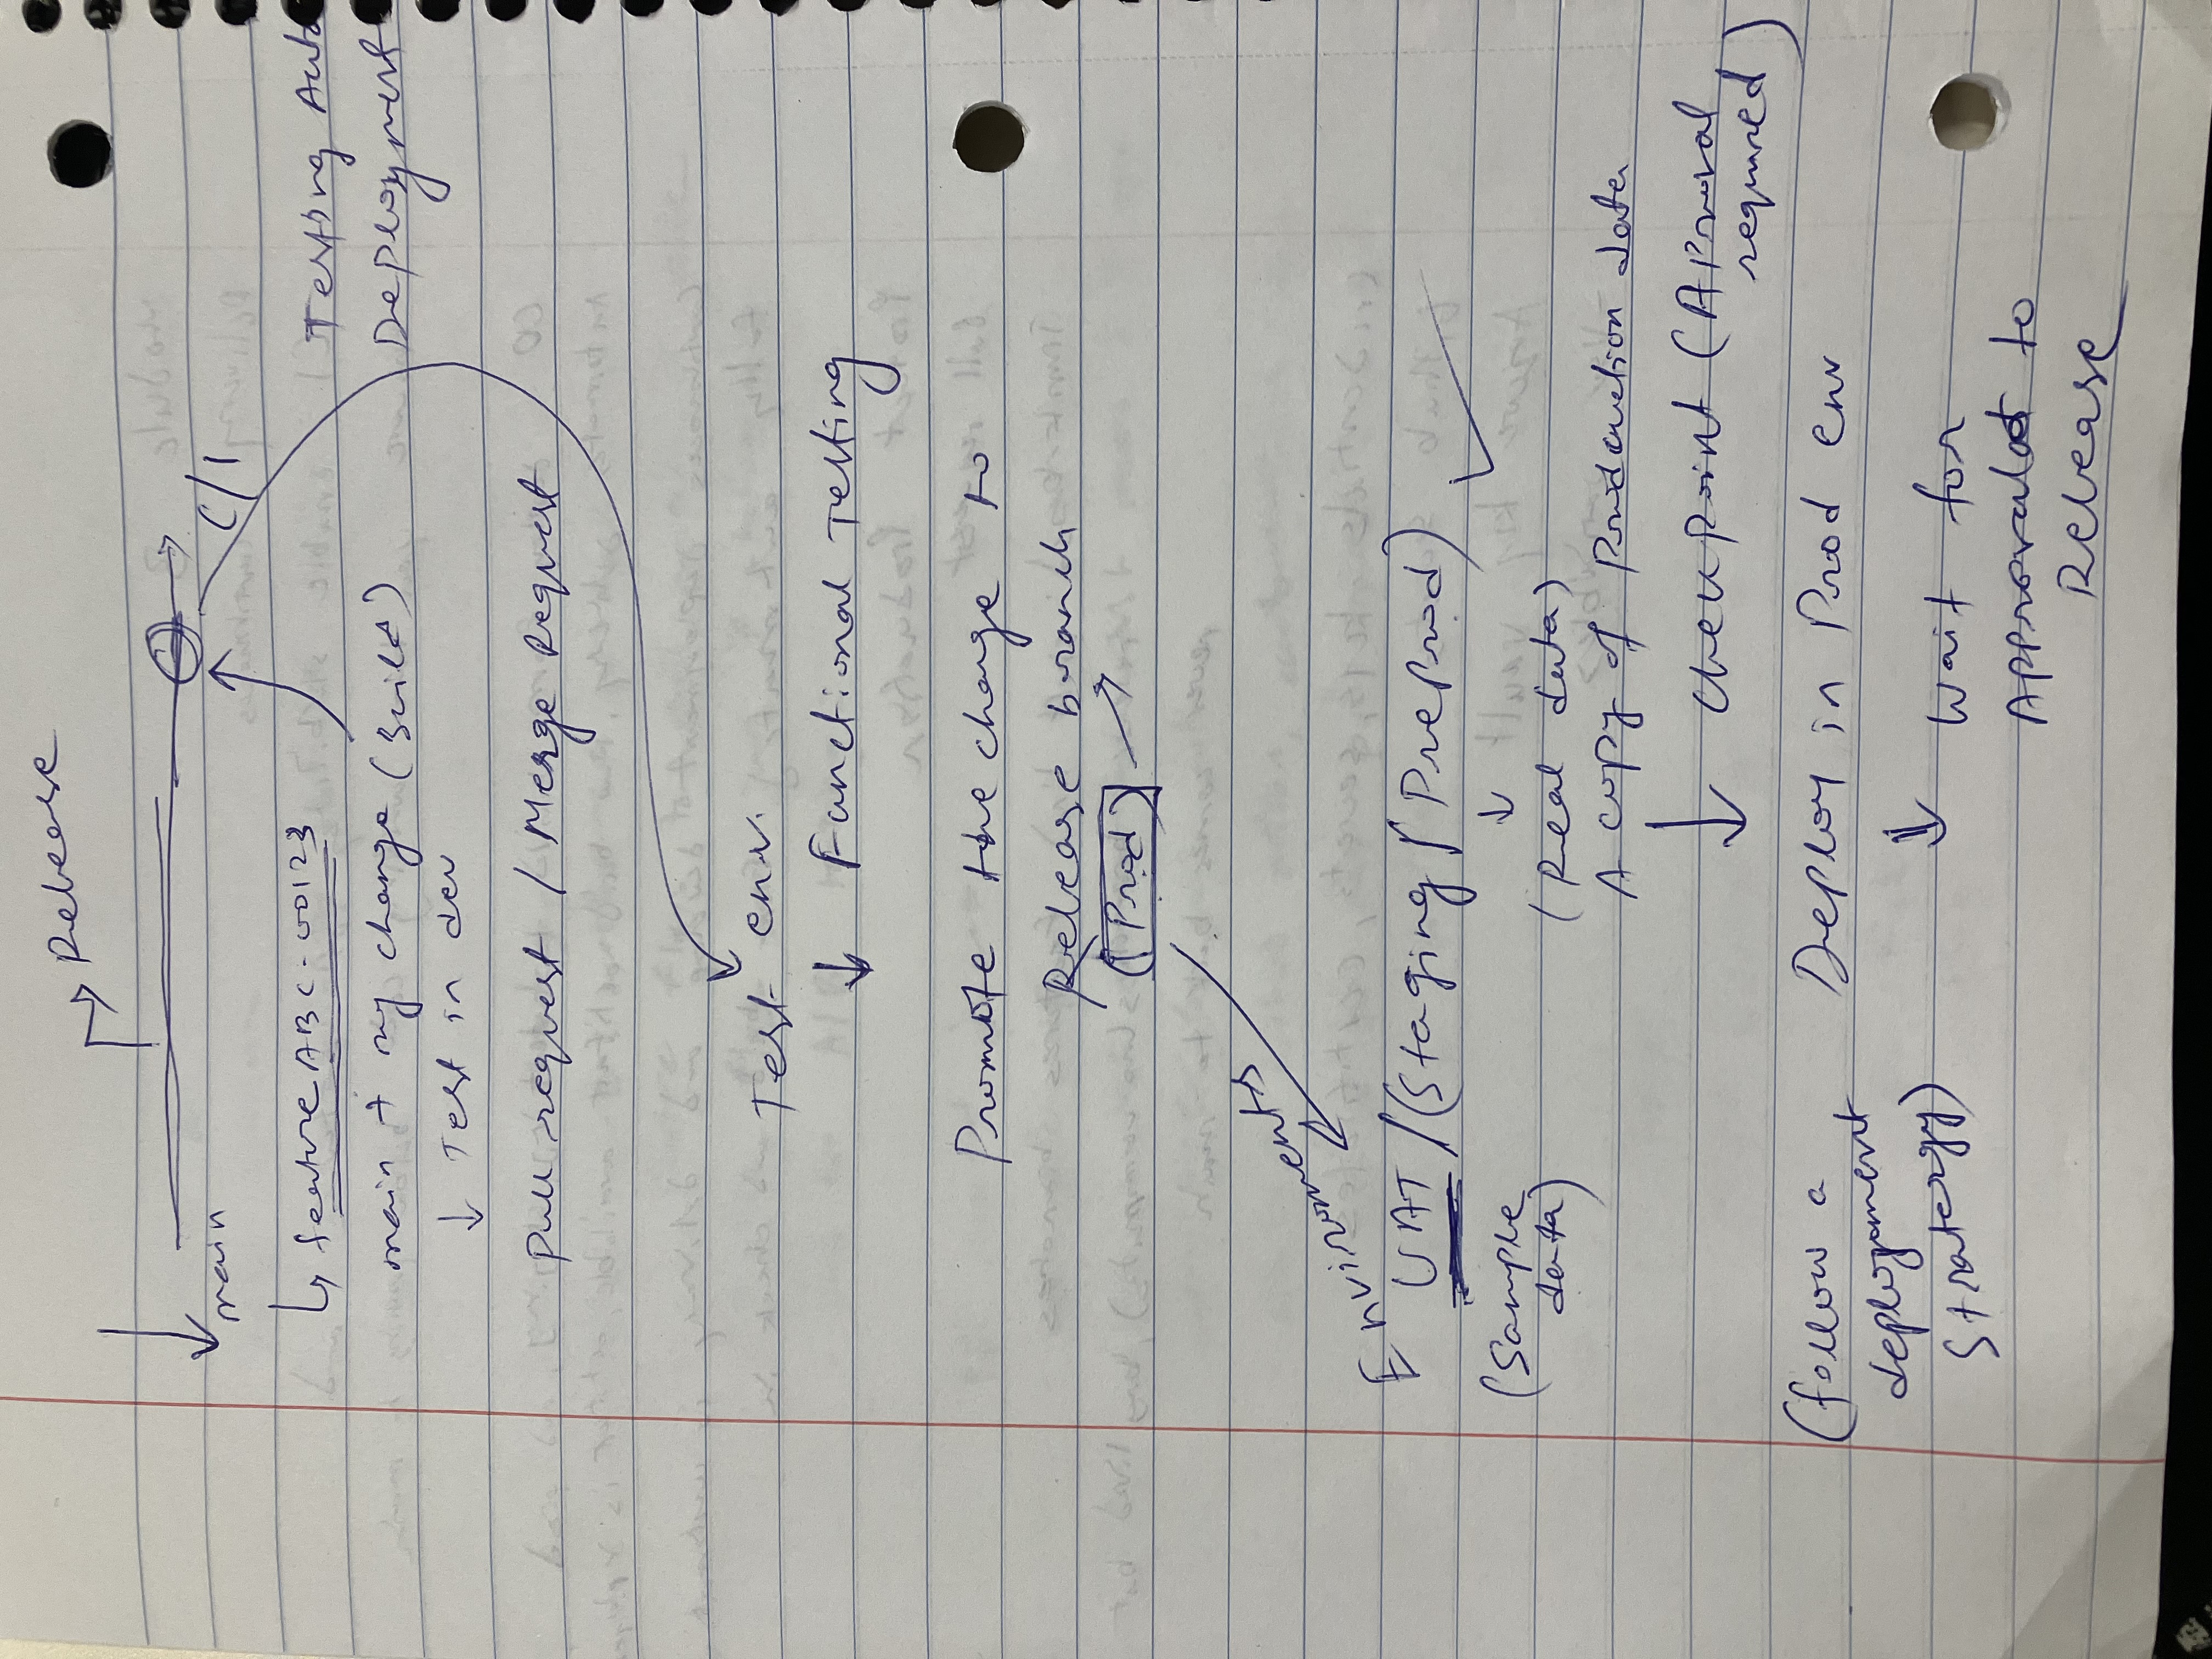 Release
main
C/I
feature ABC-00123
Testing Auto
main + my change (Built)
Deployment
Test in dev
Pull request / Merge Request
Test env.
Functional Testing
Promote the change to
Release branch
(Prod)
Enviroments
UAT / (Staging / PreProd)
(Sample
data)
(Real data)
A copy of Production data
Checkpoint (Aproval
required)
(follow a
deployment
Stratergy)
Deploy in Prod env
Wait for
Approval to
Release